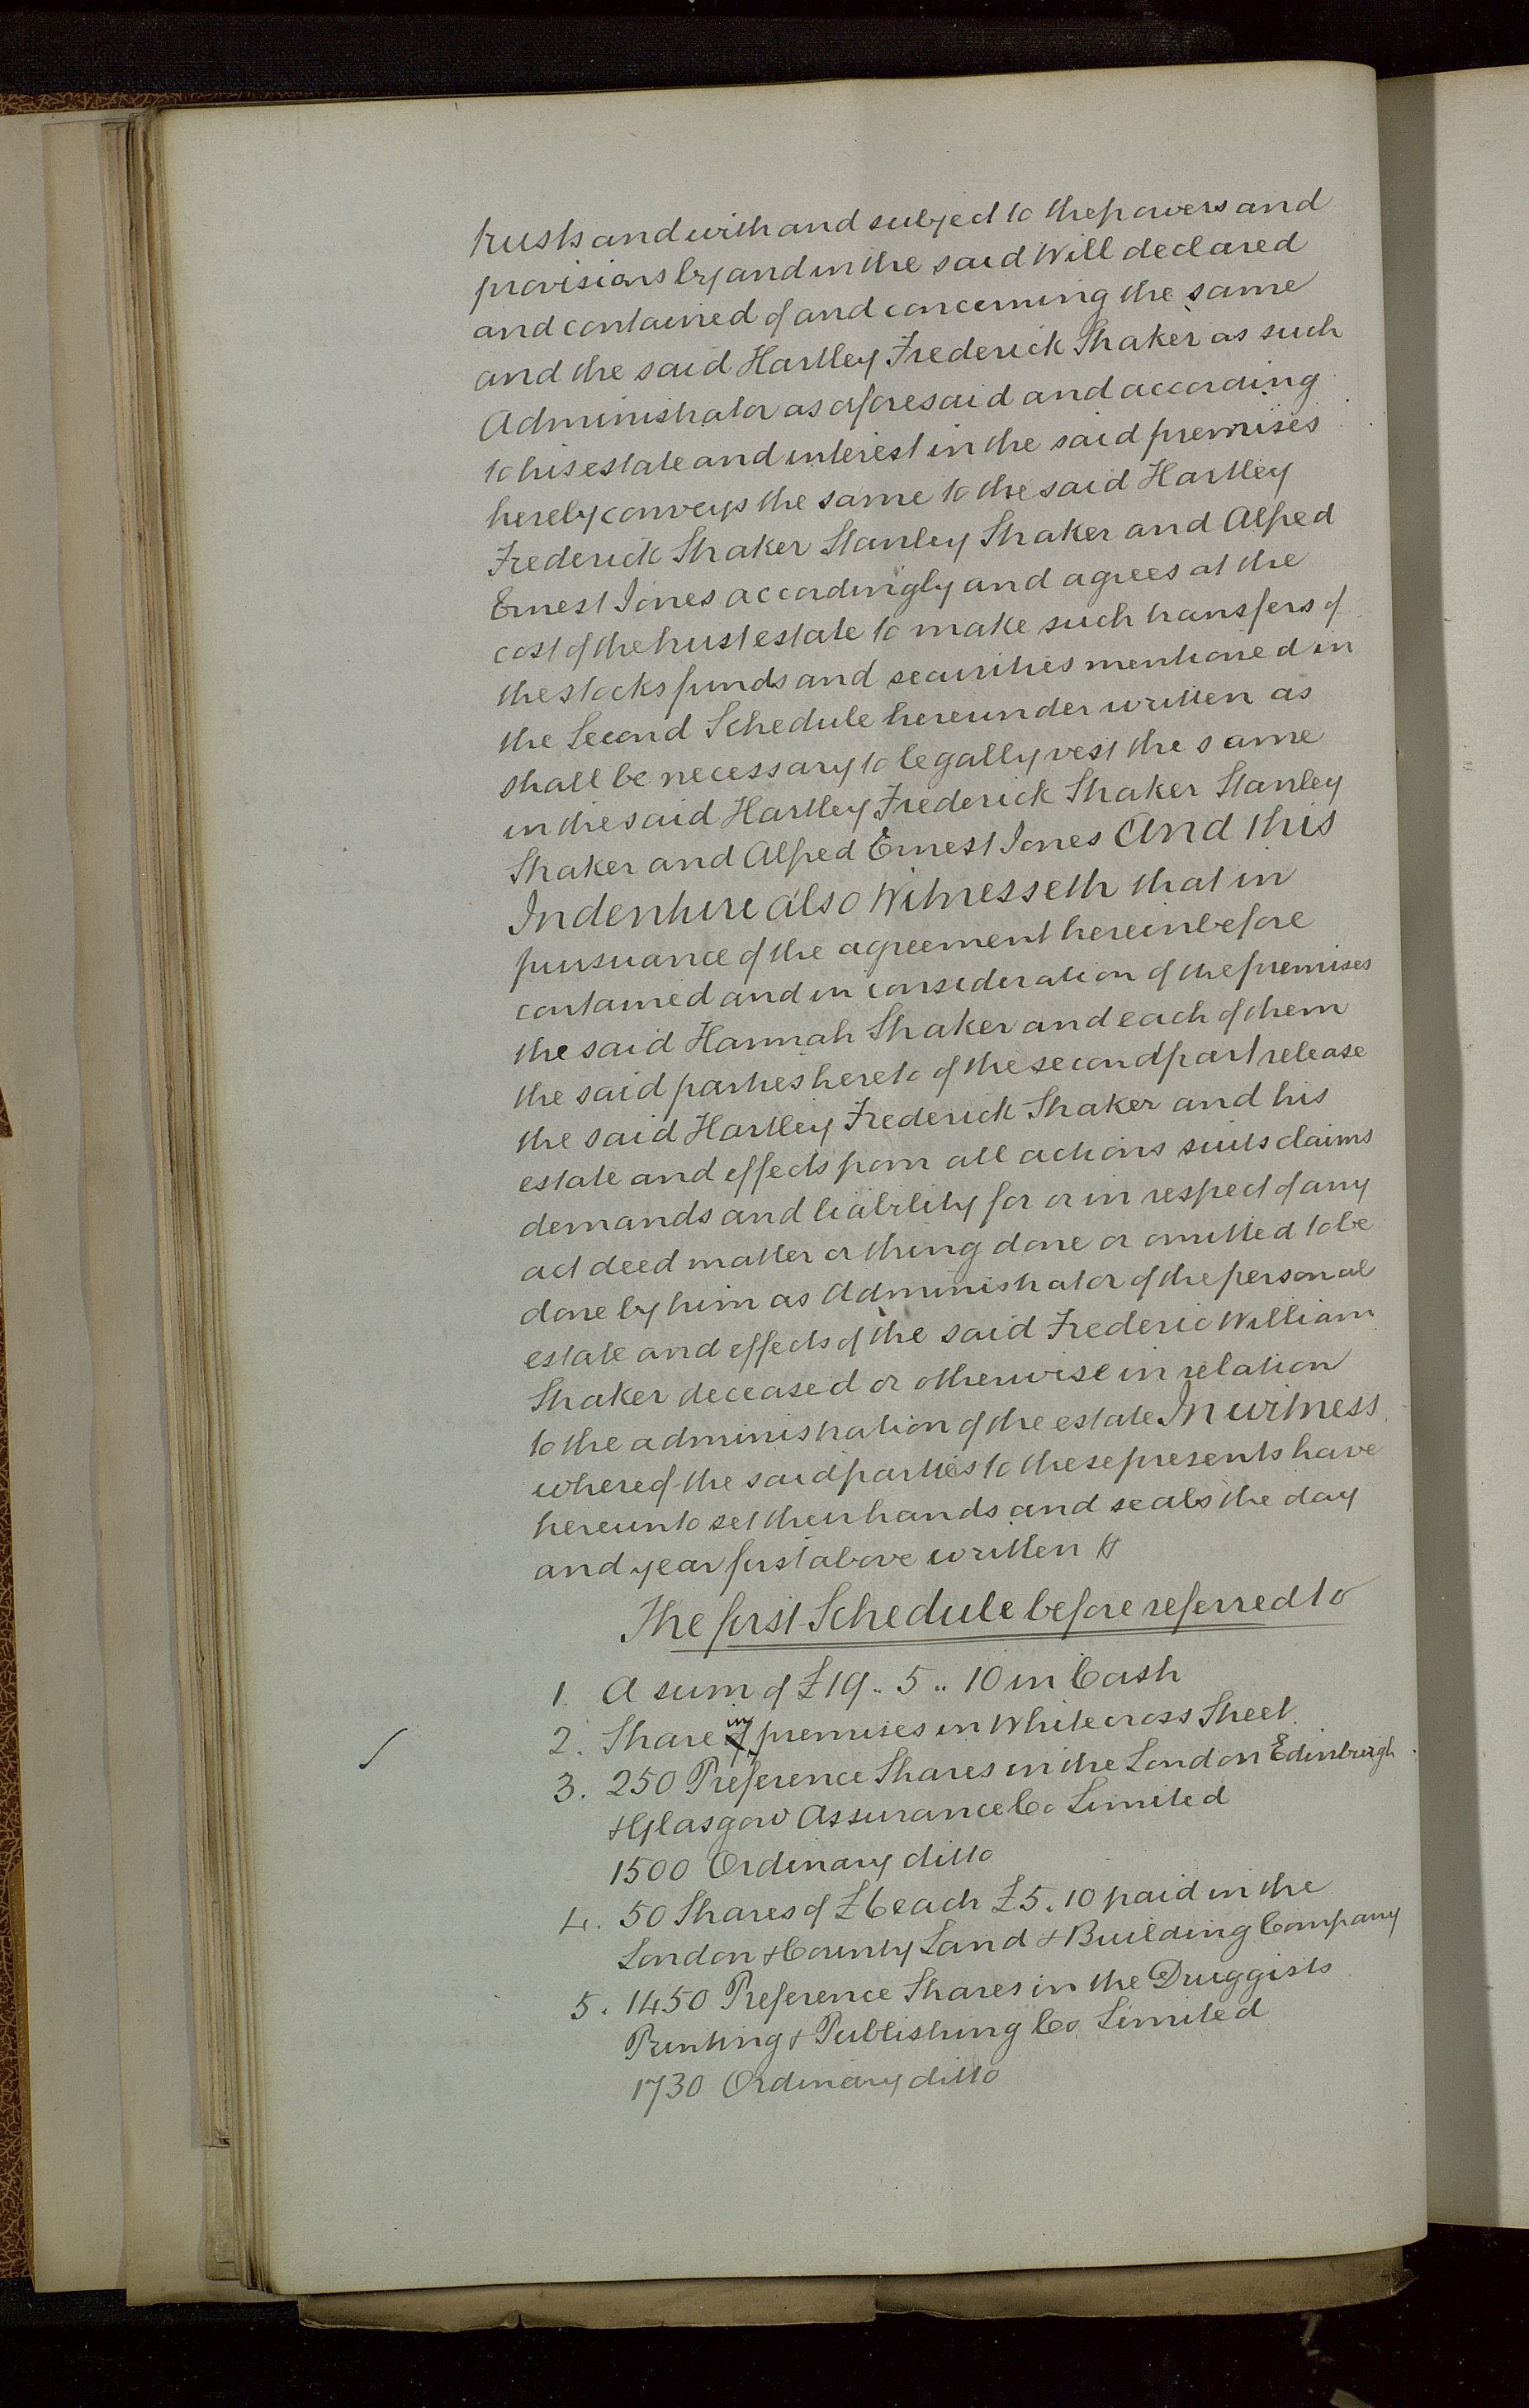 trusts and with and subject to the powers and
provisions by and in the said Will declared
and contained of and concerning the same
and the said Hartley Frederick Shaker as such
Administrator as aforesaid and according
to his estate and interest in the said premises
hereby conveys the same to the said Hartley
Frederick Shaker Stanley Shaker and Alfred
Ernest Jones accordingly and agrees at the
cost of the trust estate to make such transfers of
the stocks funds and securities mentioned in
the Second Schedule hereunder written as
shall be necessary to legally vest the same
in the said Hartley Frederick Shaker Stanley
Shaker and Alfred Ernest Jones And this
Indenture also Witnesseth that in
pursuance of the agreement hereinbefore
contained and in consideration of the premises
the said Hannah Shaker and each of them
the said parties hereto of the second part release
the said Hartley Frederick Shaker and his
estate and effects from all actions suits claims
demands and liability for or in respect of any
act deed matter or thing done or omitted to be
done by him as Administrator of the personal
estate and effects of the said Frederic William
Shaker deceased or otherwise in relation
to the administration of the estate In witness
whereof the said parties to these presents have
hereunto set their hands and seals the day
and year first above written
The first Schedule before referred to
1. A sum of £19 .. 5 .. 10 in Cash
2. Share in premises in Whitecross Street
3. 250 Preference Shares in the London Edinburgh
& Glasgow Assurance Co Limited
1500 Ordinary ditto
4. 50 Shares of £6 each £5. 10 paid in the
London & County Land & Building Company
5. 1450 Preference Shares in the Druggists
Printing & Publishing Co Limited
1730 Ordinary ditto